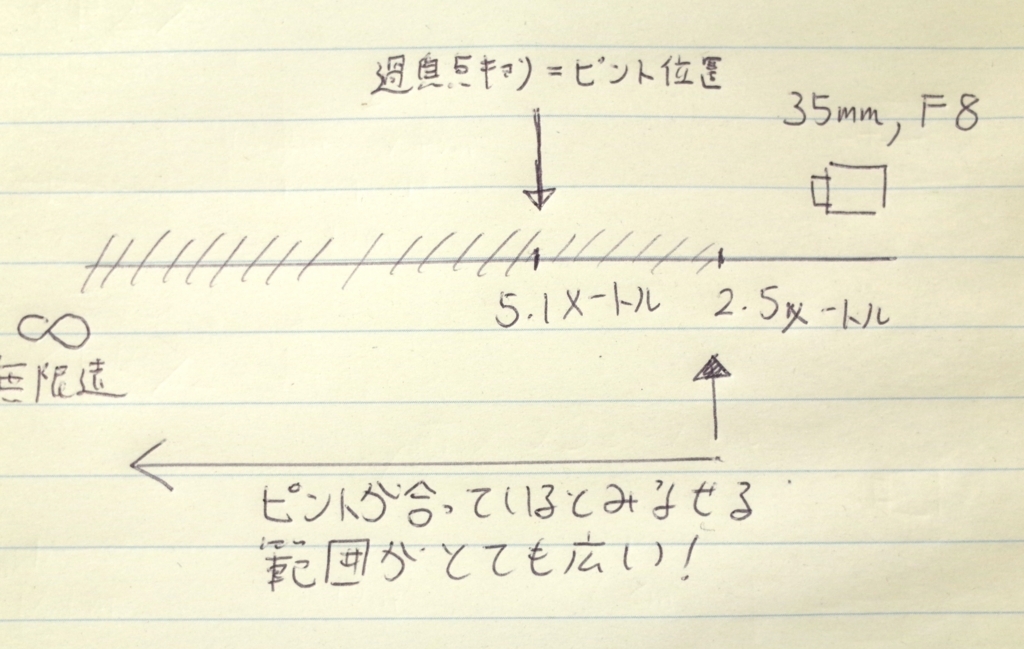 過焦点キョリ=ピント位置
35mm, F8
5.1メートル
2.5メートル
∞
無限遠
ピントが合っているとみなせる
範囲がとても広い!